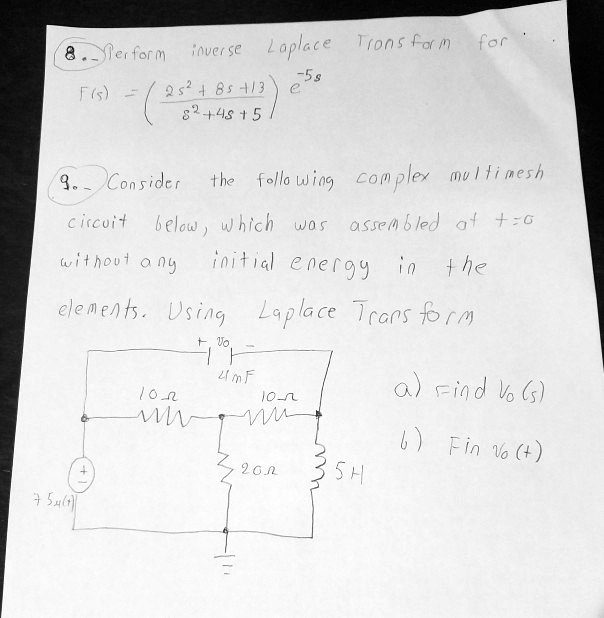 8.- Perform inverse Laplace Transform for
F(s) = ( 2s² + 8s +13 / s² +4s + 5 ) e^-5s
9.- Consider the following complex multimesh
circuit below, which was assembled at t=0
without any initial energy in the
elements. Using Laplace Transform
+ Vo -
4mF
10Ω 10Ω
a) Find Vo (s)
b) Fin vo (t)
+
-
20Ω
5H
75u(t)